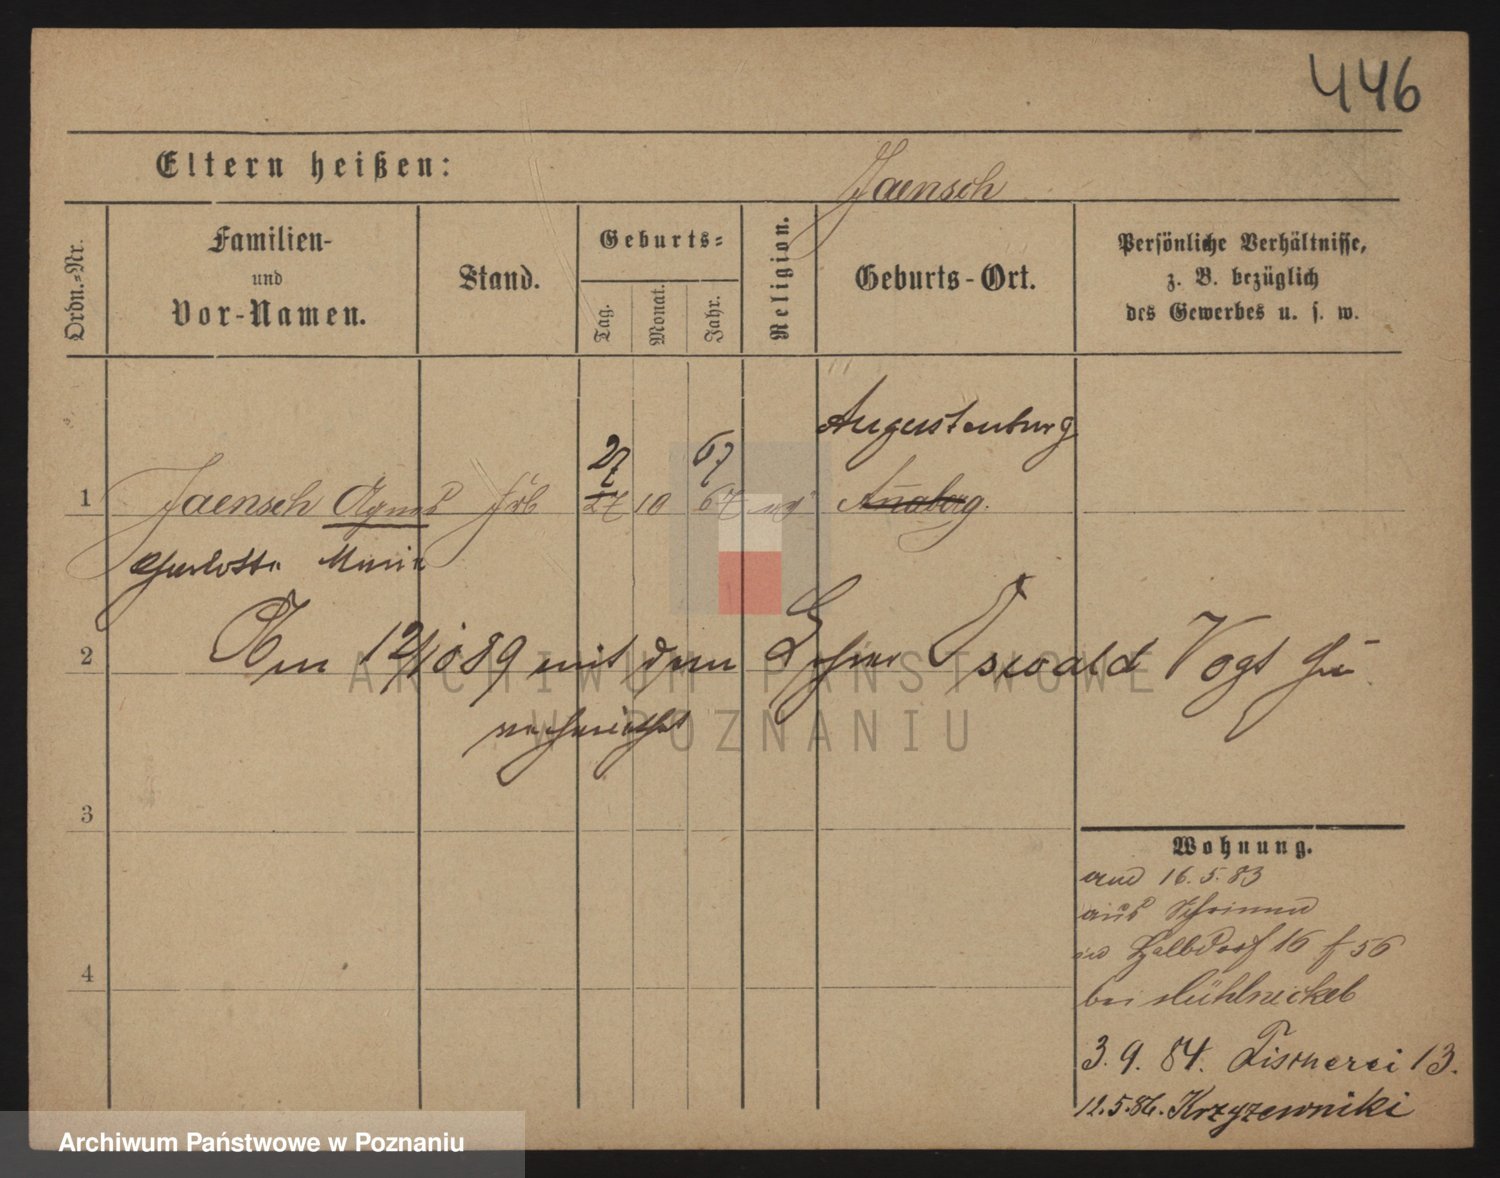 446
Eltern heißen:
Jaensch
Ordn.-Nr.
Familien-
und
Vor-Namen.
Stand.
Geburts-
Tag.
Monat.
Jahr.
Religion.
Geburts-Ort.
Persönliche Verhältnisse,
z. B. bezüglich
des Gewerbes u. s. w.
Augustenburg
27 67
1 Jaensch Agnes 27 10 67 Annaberg.
Charlotte Marie
2 Am 12/10 89 mit dem Lehrer Oswald Vogt hie
3
Wohnung.
16.5.83
aus Schrimm
in Halbdorf 16 f 56
4
bei Mühlnickel
3. 9. 84. Fischerei 13.
12.5.86. Krzyzewniki
ARCHIWUM PAŃSTWOWE
W POZNANIU
Archiwum Państwowe w Poznaniu